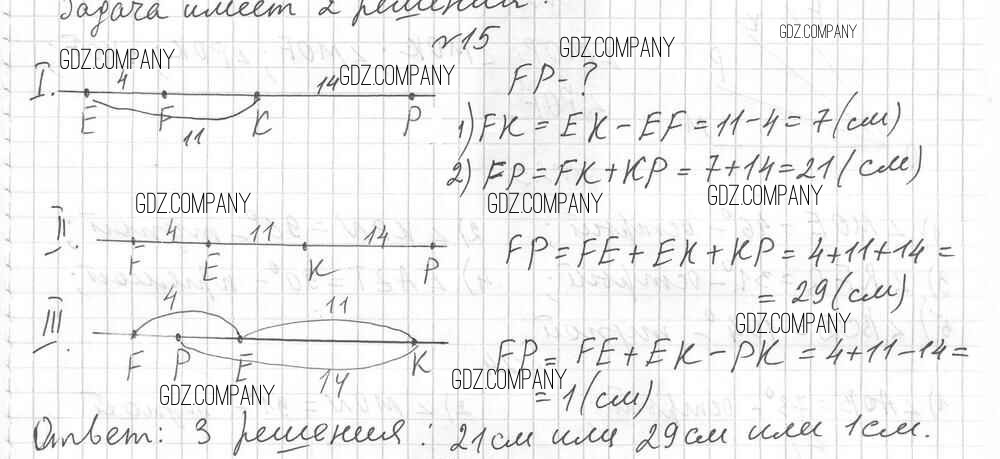 Задача имеет 2 решения.
№15
GDZ.COMPANY
GDZ.COMPANY
GDZ.COMPANY
GDZ.COMPANY
I. 4 14
E F K P
11
FP-?
1) FK = EK - EF = 11 - 4 = 7 (см)
2) FP = FK + KP = 7 + 14 = 21 (см)
GDZ.COMPANY
GDZ.COMPANY
GDZ.COMPANY
II. 4 11 14
F E K P
FP = FE + EK + KP = 4 + 11 + 14 =
= 29 (см)
GDZ.COMPANY
III. 4 11
F P E K
14
FP = FE + EK - PK = 4 + 11 - 14 =
= 1 (см)
GDZ.COMPANY
GDZ.COMPANY
Ответ: 3 решения: 21 см или 29 см или 1 см.